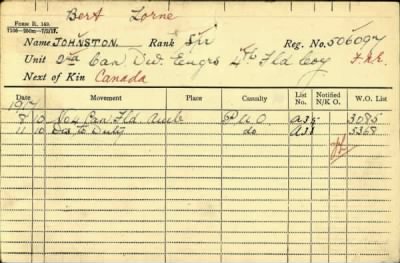 Bert Lorne
FORM R. 149.
Name JOHNSTON. Rank Spr Reg. No. 506097
Unit 2nd Can Div. Engrs 4th Fld Coy
Next of Kin Canada
Date Movement Place Casualty List No. Notified N/K O. W.O. List
1917
8 10 No 4 Can Fld. Amb P.U.O. A35 3085
11 10 Dis to Duty do A33 5368